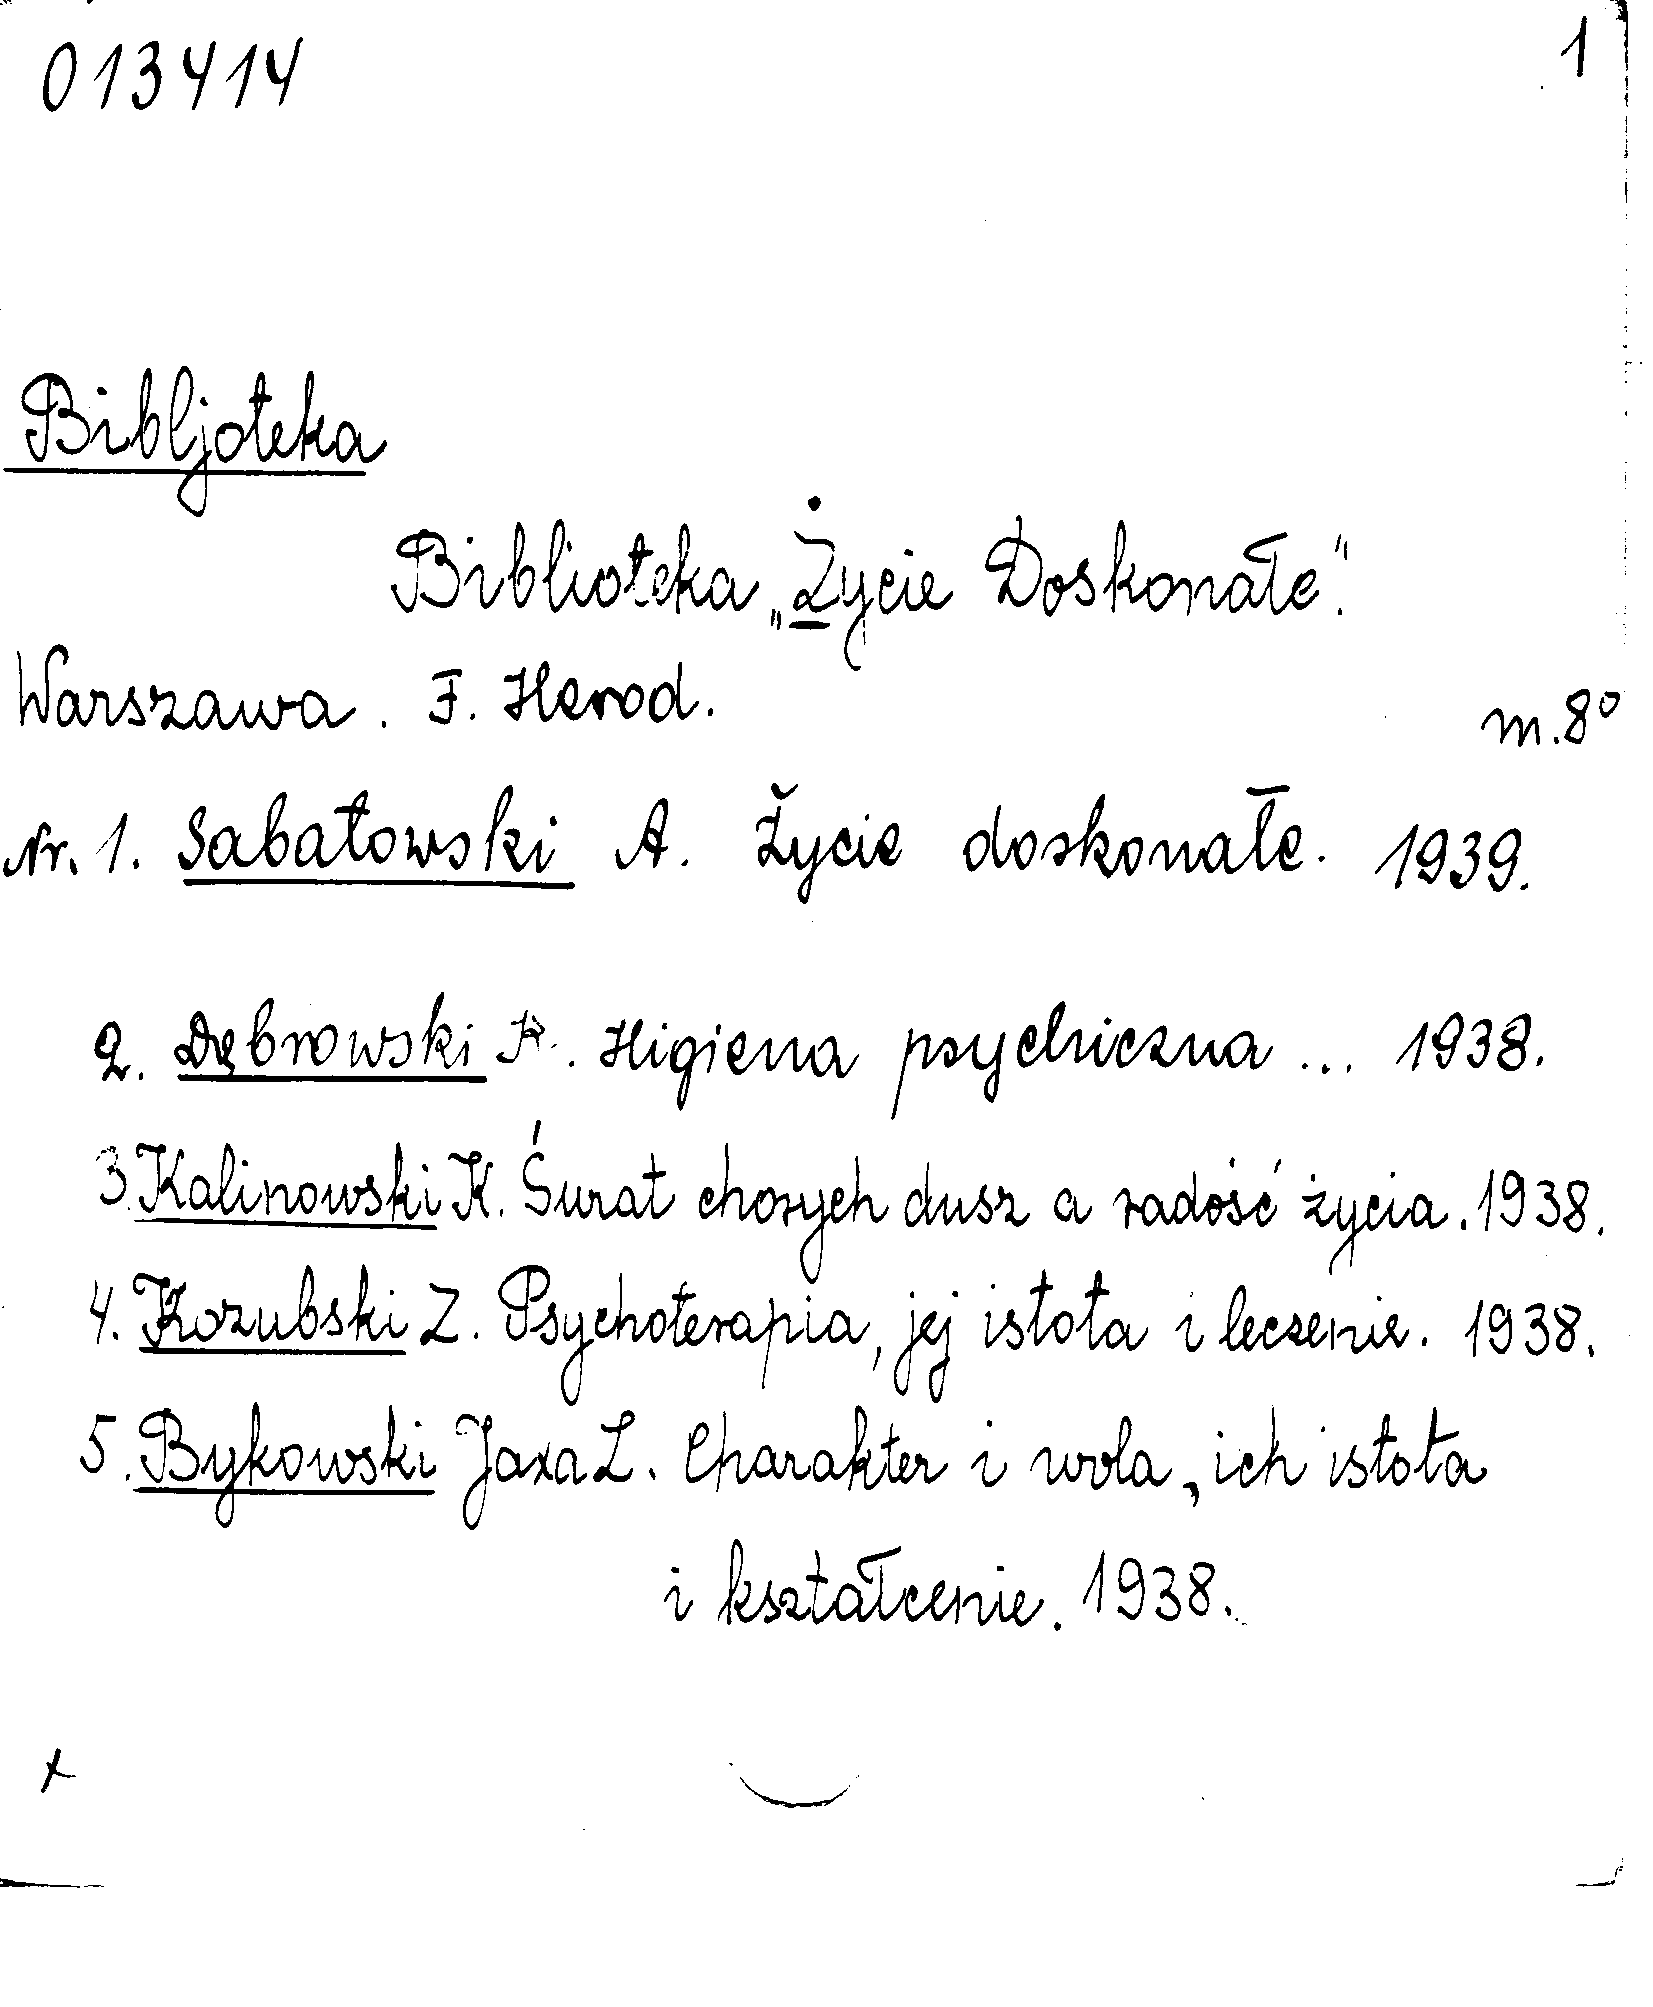 013414 1
Bibljoteka
Biblioteka „Życie Doskonałe".
Warszawa. F. Herod. m. 8º
Nr. 1. Sabatowski A. Życie doskonałe. 1939.
2. Dębrowski K. Higiena psychiczna ... 1938.
3. Kalinowski K. Śwrat chorych dusz a radość życia. 1938.
4. Kozubski Z. Psychoterapia, jej istota i leczenie. 1938.
5. Bykowski Jaxa L. Charakter i wola, ich istota
i kształcenie. 1938.
x